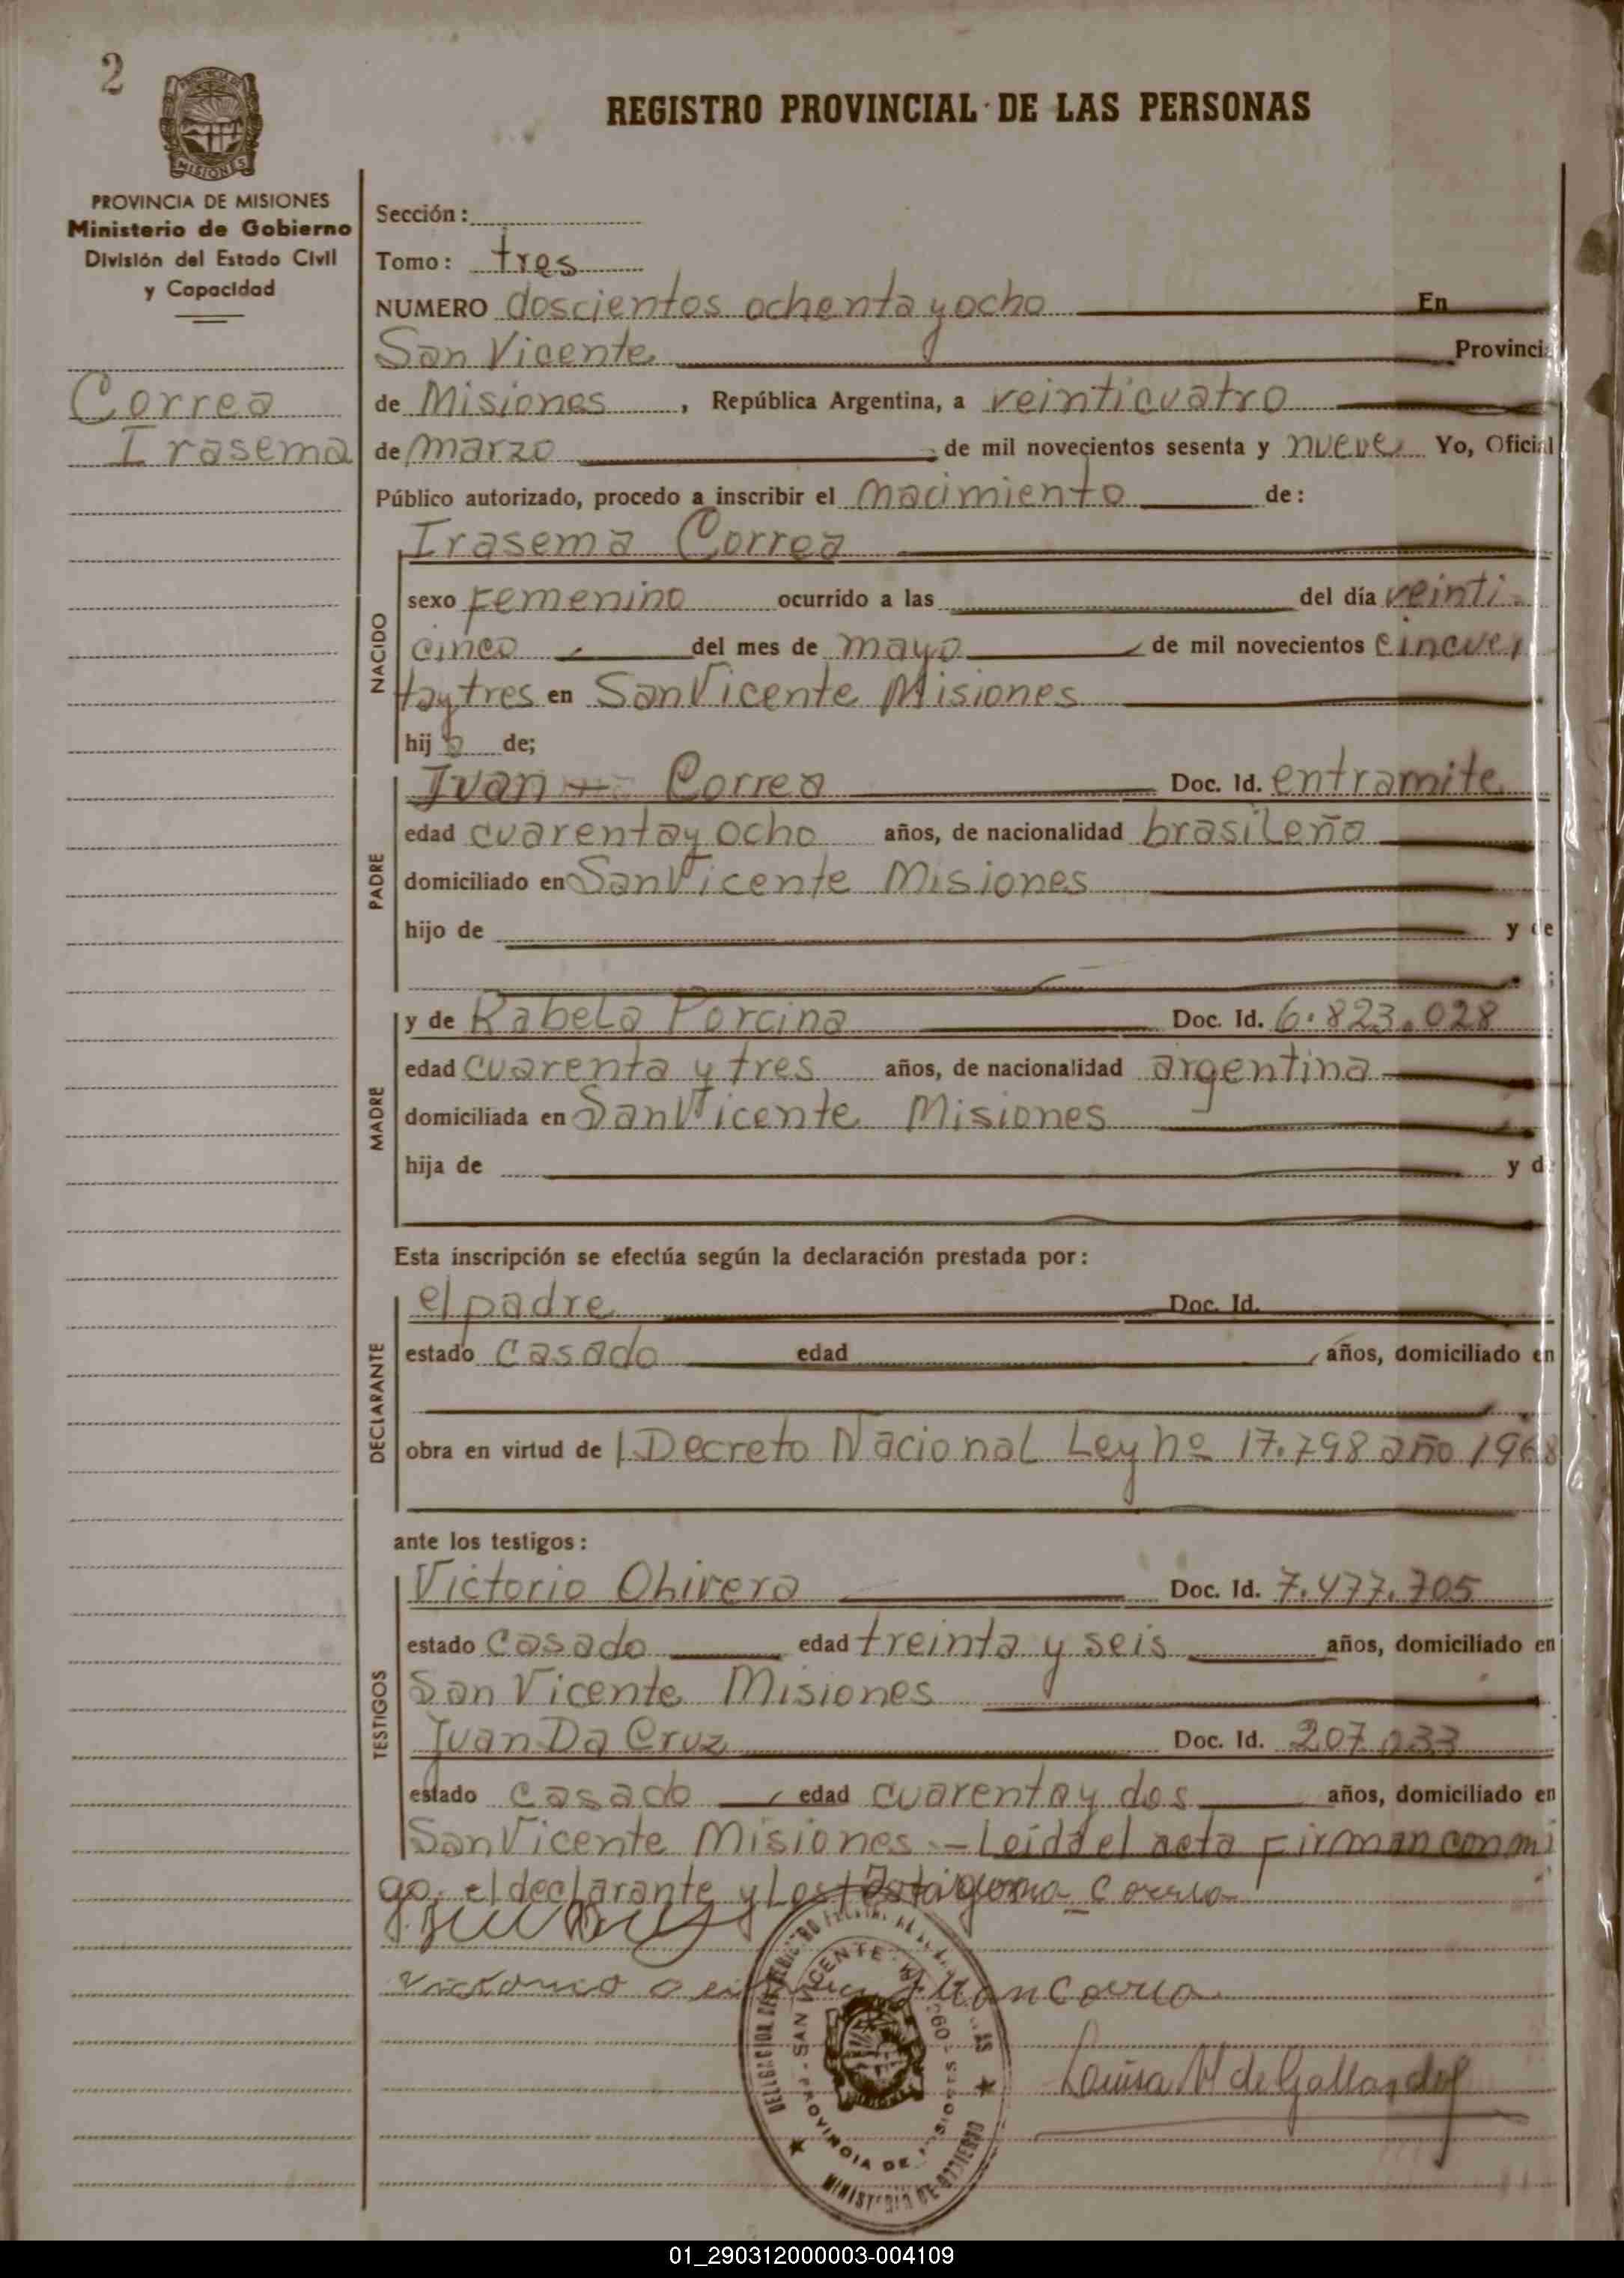 2
REGISTRO PROVINCIAL DE LAS PERSONAS
PROVINCIA DE MISIONES
Ministerio de Gobierno
División del Estado Civil
y Capacidad
Correa
Irasema
Sección:
Tomo: tres
NUMERO doscientos ochenta y ocho En
San Vicente Provinci
de Misiones, República Argentina, a veinticuatro
de marzo de mil novecientos sesenta y nueve Yo, Oficial
Público autorizado, procedo a inscribir el nacimiento de:
NACIDO
Irasema Correa
sexo Femenino ocurrido a las del día veinti
cinco del mes de mayo de mil novecientos cincuen
tay tres en San Vicente Misiones
hija de;
PADRE
Juan Correa Doc. Id. entramite
edad cuarentay ocho años, de nacionalidad brasileña
domiciliado en San Vicente Misiones
hijo de y de
MADRE
y de Rabela Porcina Doc. Id. 6.823.028
edad cuarenta y tres años, de nacionalidad argentina
domiciliada en San Vicente Misiones
hija de y d
Esta inscripción se efectúa según la declaración prestada por:
DECLARANTE
el padre Doc. Id.
estado casado edad años, domiciliado en
obra en virtud de Decreto Nacional Ley nº 17.798 año 1968
ante los testigos:
TESTIGOS
Victorio Olivera Doc. Id. 7.477.705
estado casado edad treinta y seis años, domiciliado en
San Vicente Misiones
Juan Da Cruz Doc. Id. 207.233
estado casado edad cuarentay dos años, domiciliado en
San Vicente Misiones.- Leida el acta Firman con mi
go, el declarante y Los Correa
Juan Correa
SAN VICENTE
PROVINCIA DE MISIONES
MINISTERIO DE GOBIERNO
Luisa M de Gallardo
01_290312000003-004109